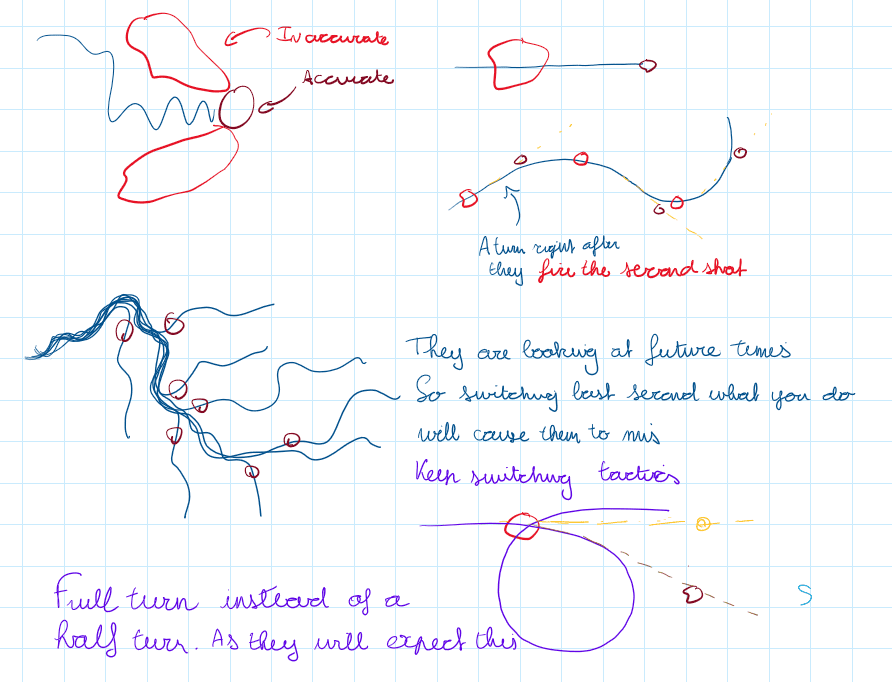 Inaccurate
Accurate
A turn right after
they fire the second shot
They are looking at future times
So switching last second what you do
will cause them to mis
Keep switching tactics
Full turn instead of a
half turn. As they will expect this
S